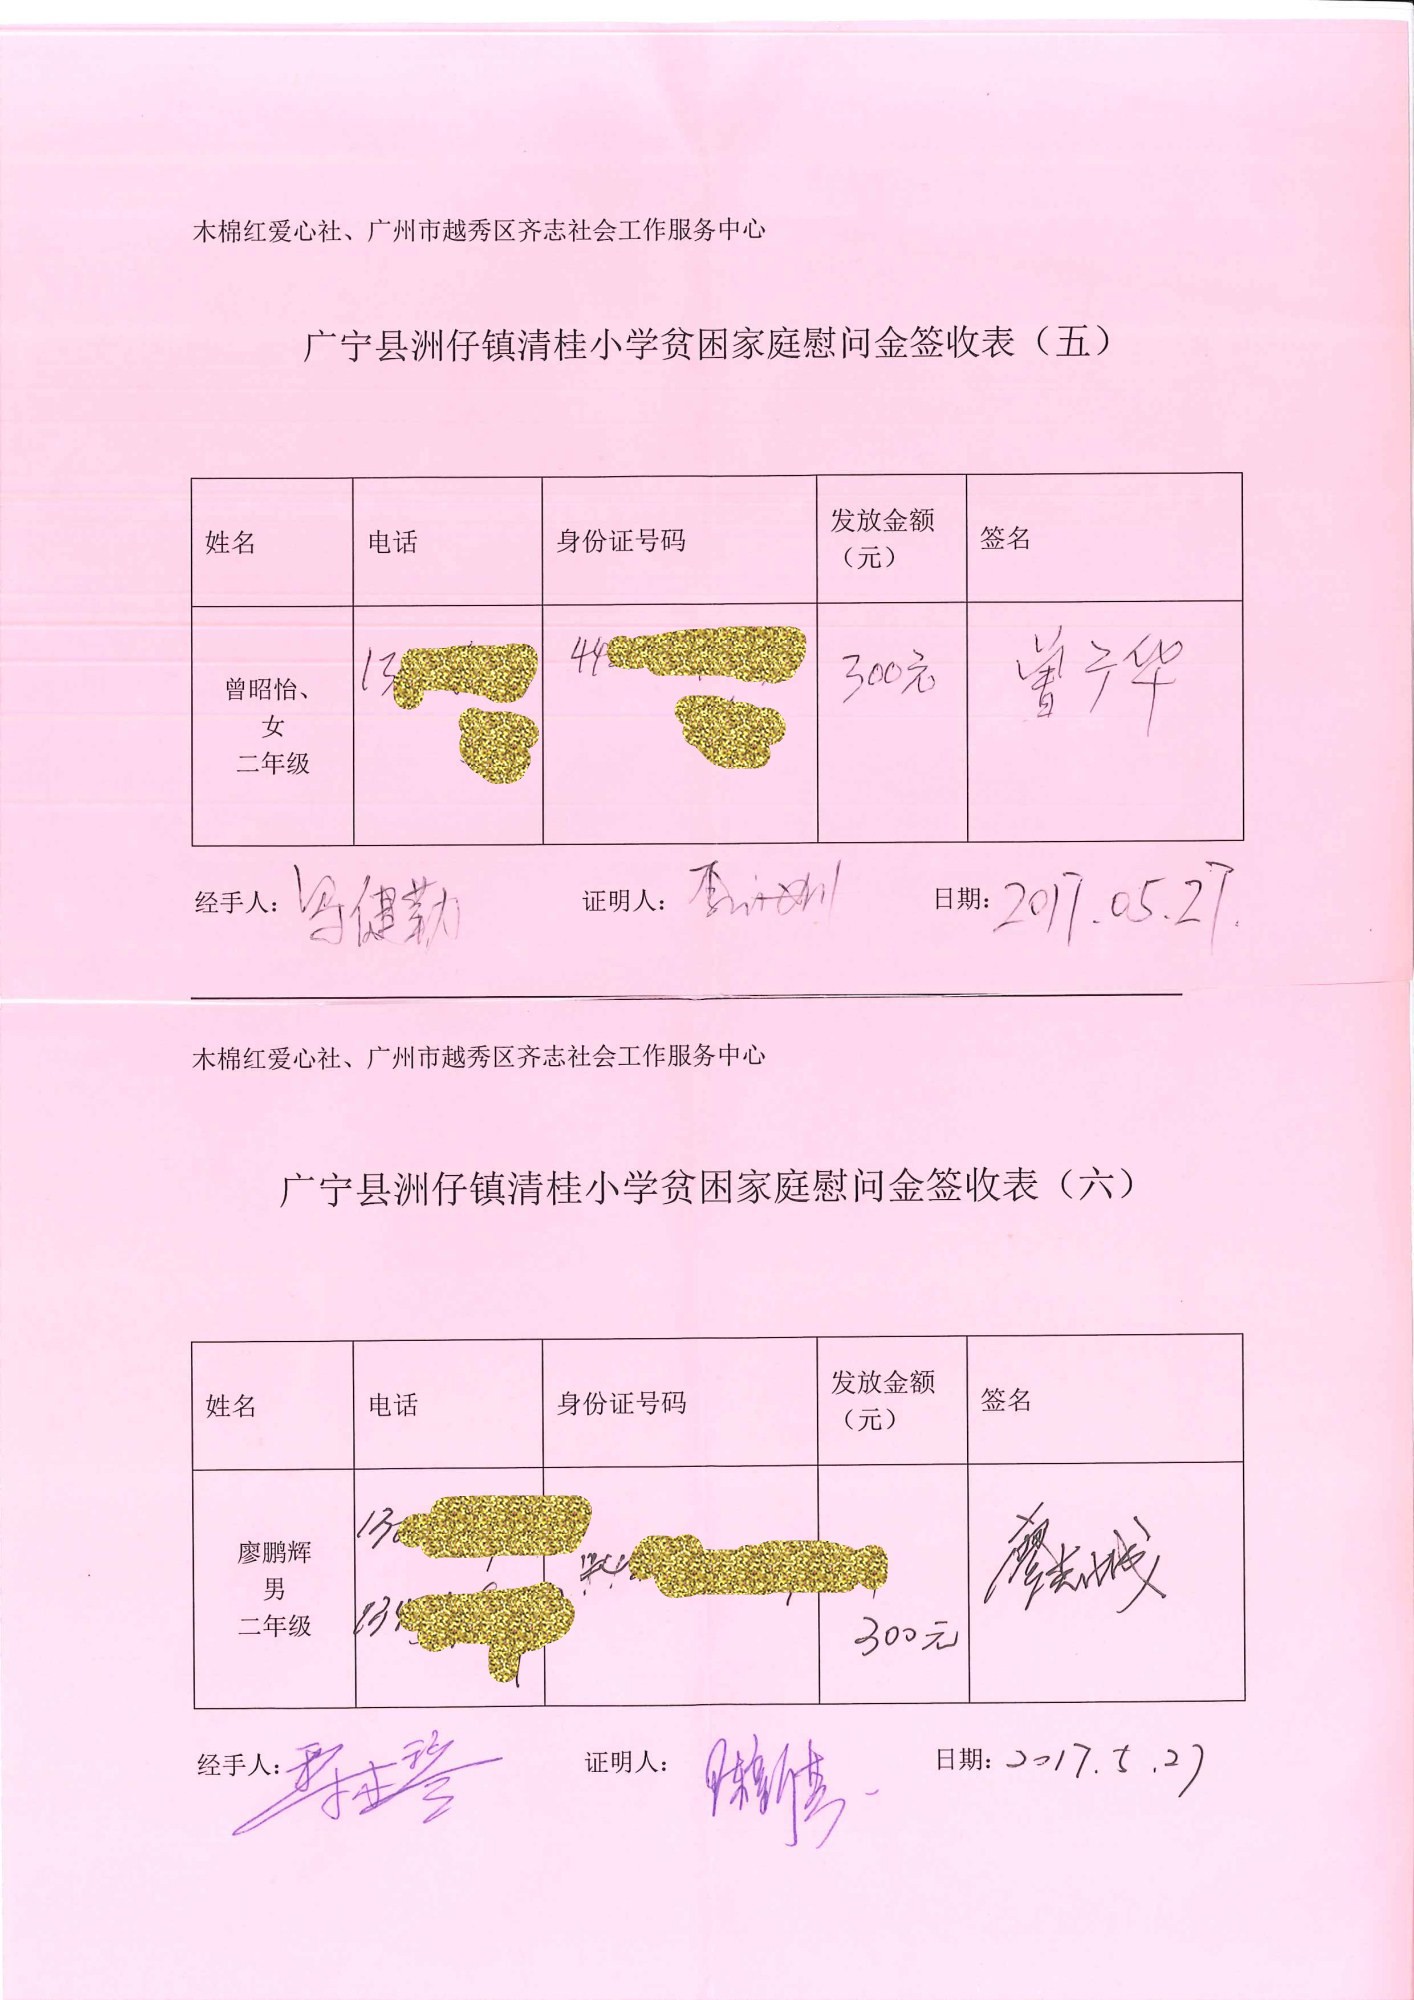 木棉红爱心社、广州市越秀区齐志社会工作服务中心
广宁县洲仔镇清桂小学贫困家庭慰问金签收表（五）
姓名 电话 身份证号码 发放金额（元） 签名
曾昭怡、
女
二年级
13 44 300元 曾广华
经手人：冯健勤 证明人： 日期：2017.05.27.
木棉红爱心社、广州市越秀区齐志社会工作服务中心
广宁县洲仔镇清桂小学贫困家庭慰问金签收表（六）
姓名 电话 身份证号码 发放金额（元） 签名
廖鹏辉
男
二年级
13
13 300元
经手人： 证明人： 日期：2017.5.27